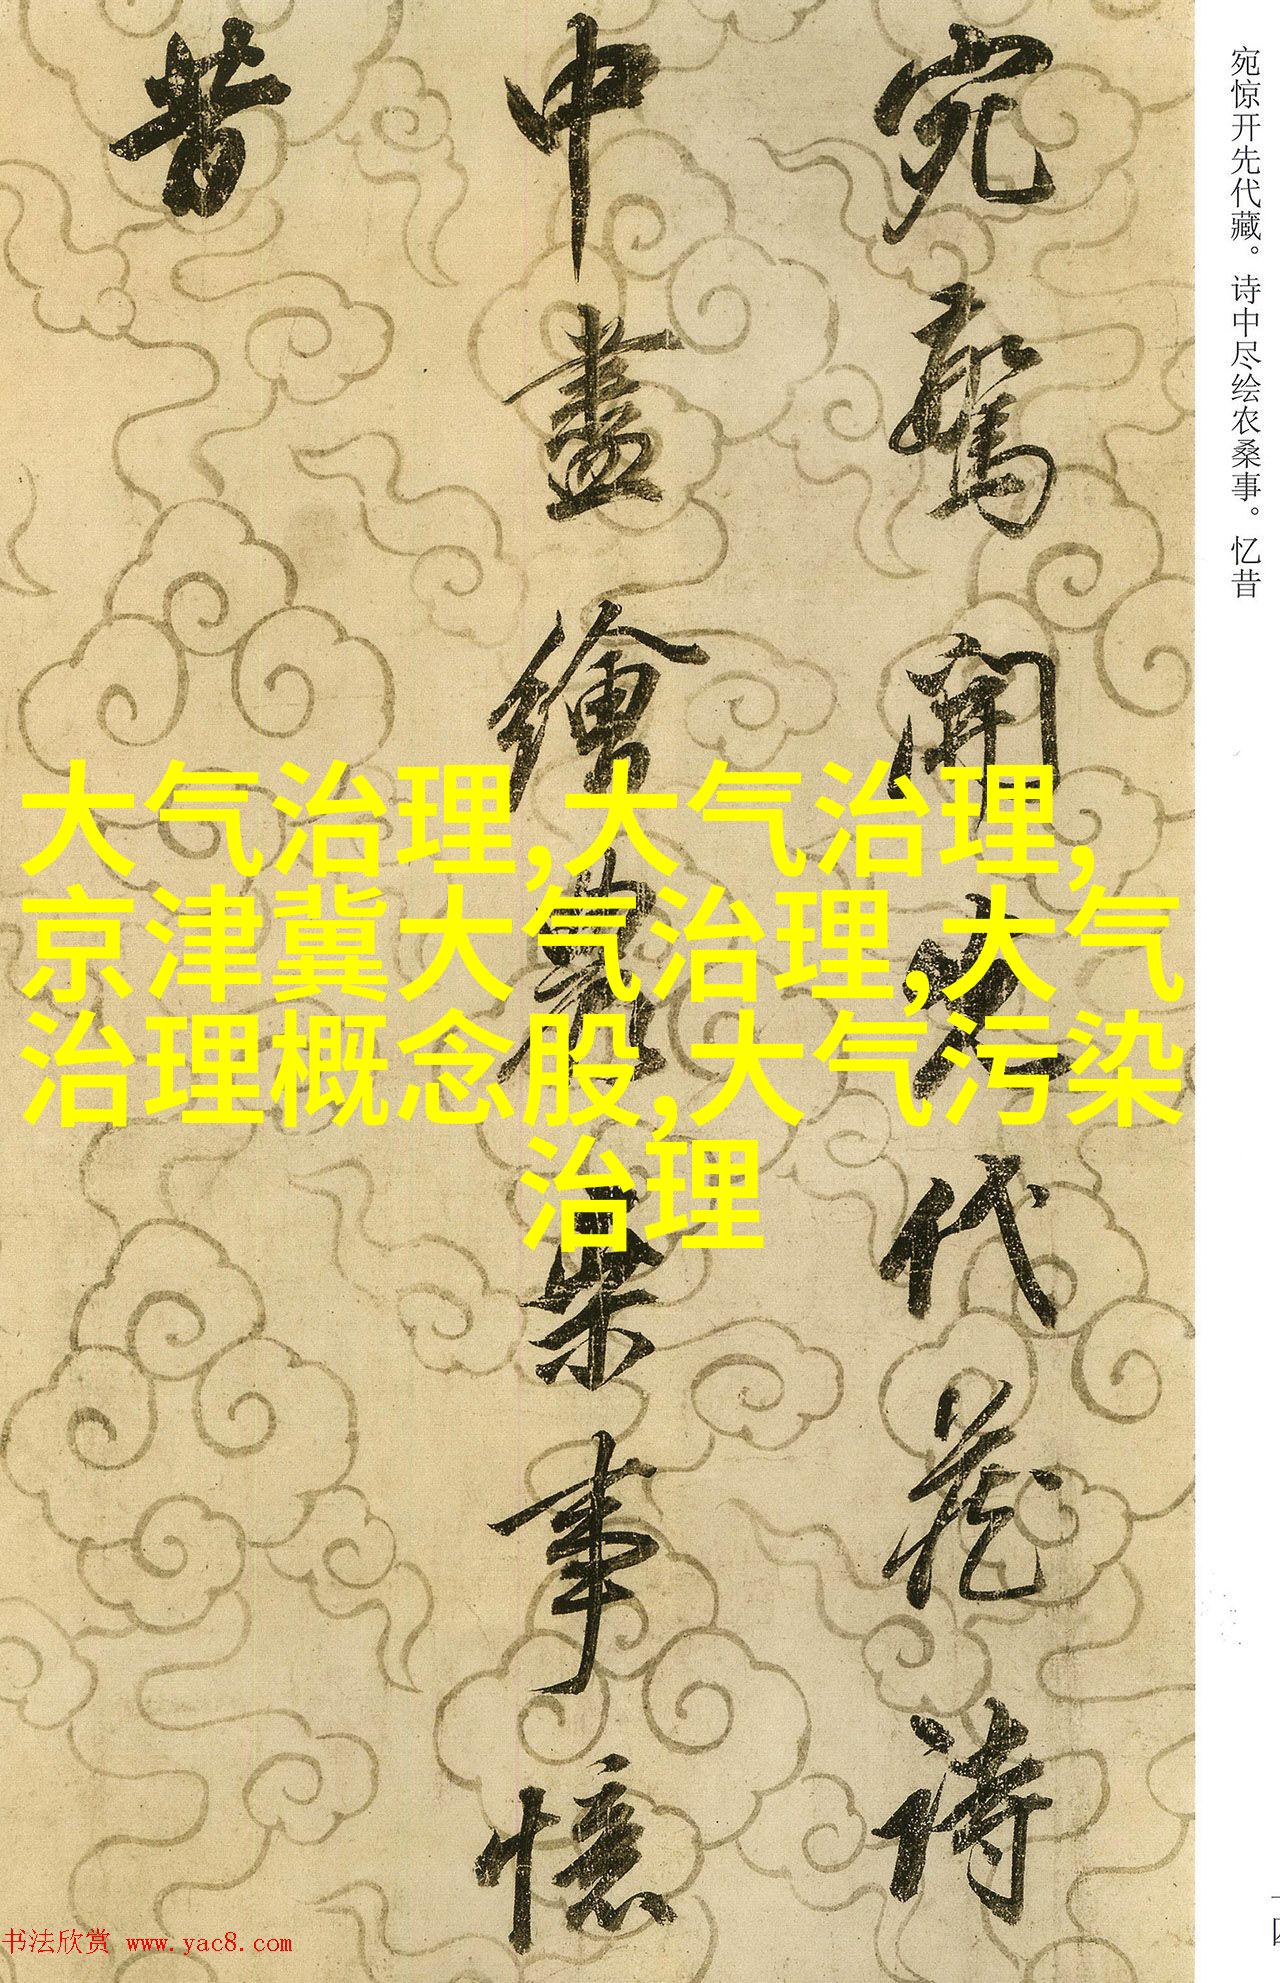 宛驚開先代藏詩
中盡繪農桑事憶
昔
宛惊开先代藏。诗中尽绘农桑事。忆昔
大气治理,大气治理,
京津冀大气治理,大气
治理概念股,大气污染
治理
书法欣赏 www.yac8.com